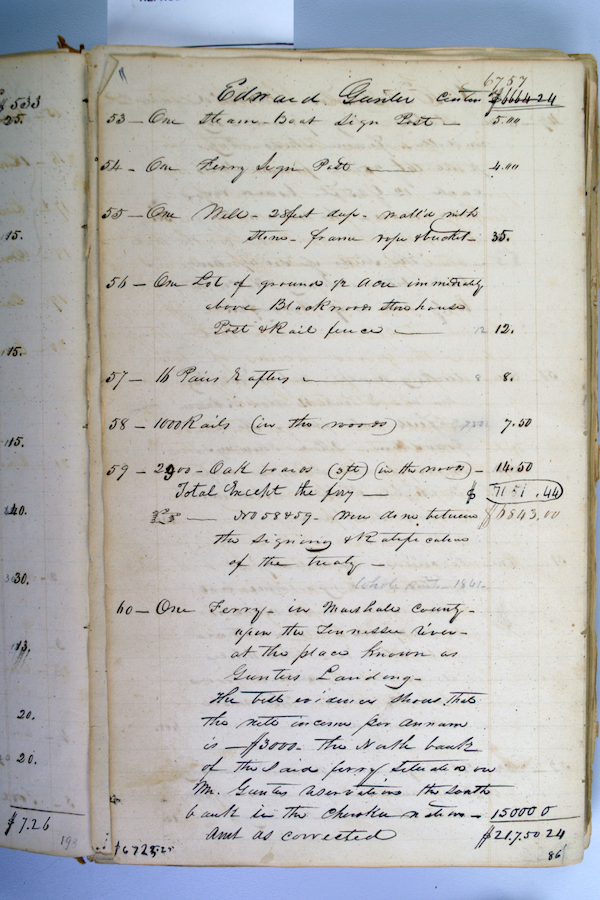 $533
25.
15.
15.
15.
40.
30.
13.
20.
20.
$7.26
11
67 57
Edward Gunter Contin $6664 24
53 — One Steam-Boat Sign Post — 5.00
54 — One Ferry Sign Post 4.00
55 — One Well - 28 feet deep - wall'd with
stone - frame rope & bucket - 35.
56 — One Lot of ground 1/2 Acre immediately
above Blackwoods storehouse
Post & Rail fence — 12 12.
57 — 16 Pairs Rafters — 8.
58 — 1000 Rails (in the woods) 7.50
59 — 2900 - Oak boards (3ft) (in the woods) — 14.50
Total Except the fery — $ 7151.44
— No 58 & 59 - were done between $6843.00
the signing & Ratification
of the treaty —
60 — One Ferry - in Marshall county -
upon the Tennessee river -
at the place known as
Gunters Landing -
The best evidence shows that
the nett income per annum
is — $3000 - the North bank
of the said ferry situated on
Mr. Gunters reservation the south
bank in the Cherokee nation — 15000 0
Amt as corrected $21.750 24
86